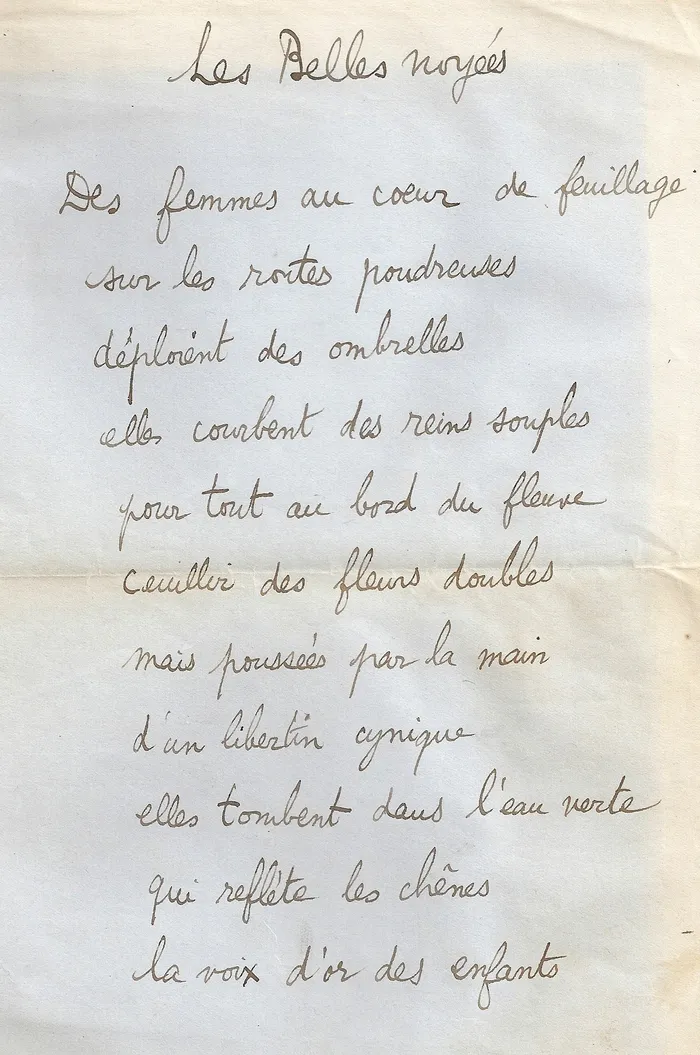 Les Belles noyées
Des femmes au coeur de feuillage
sur les routes poudreuses
déploient des ombrelles
elles courbent des reins souples
pour tout au bord du fleuve
ceuillir des fleurs doubles
mais poussées par la main
d'un libertin cynique
elles tombent dans l'eau verte
qui reflète les chênes
la voix d'or des enfants